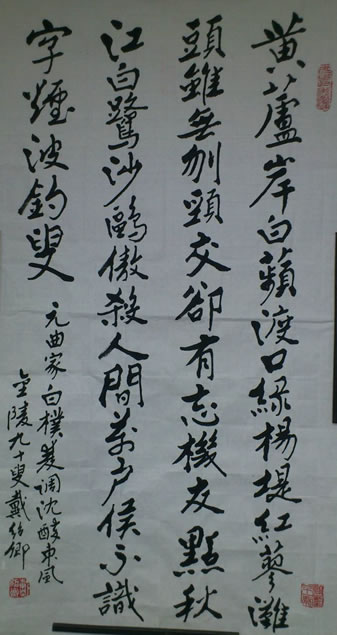 黄蘆岸白蘋渡口綠楊堤紅蓼灘
頭雖無刎頸交卻有忘機友點秋
江白鷺沙鷗傲殺人間萬户侯不識
字煙波釣叟
元曲家白樸雙調沈醉東風
金陵九十叟戴紹卿